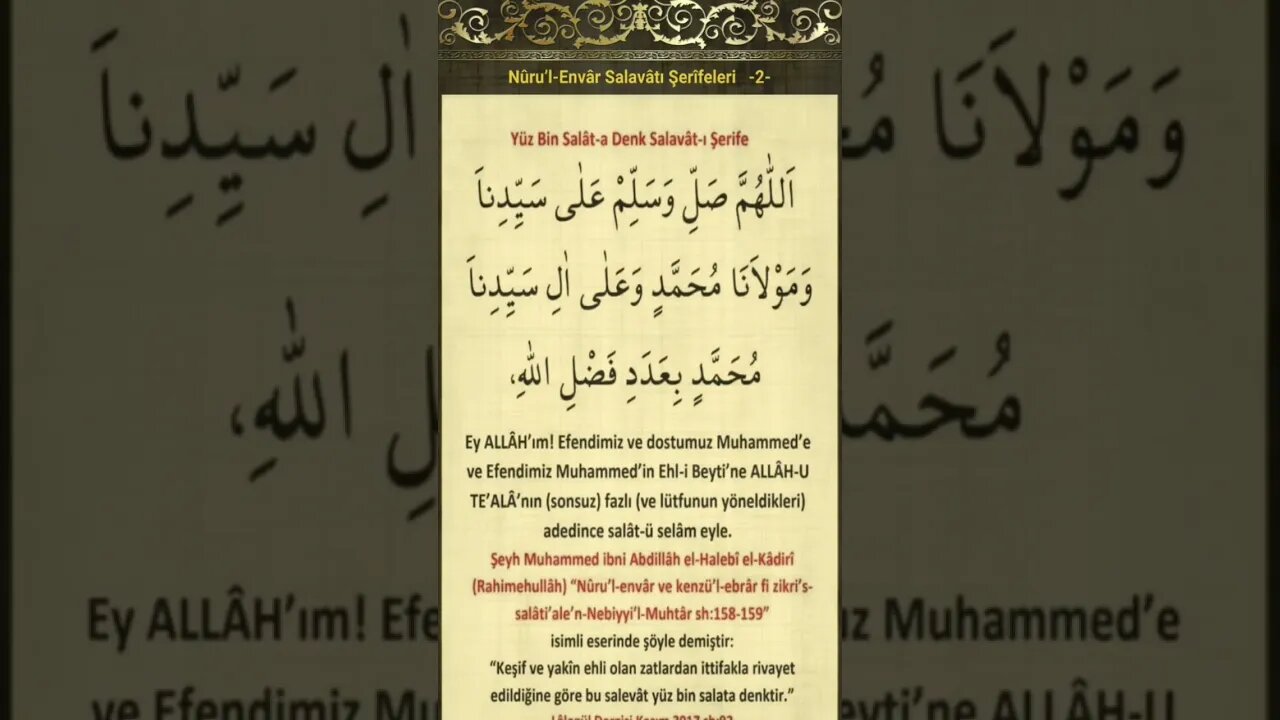 Nûru’l-Envâr Salavâtı Şerîfeleri -2-
Yüz Bin Salât-a Denk Salavât-ı Şerife
اَللّٰهُمَّ صَلِّ وَسَلِّمْ عَلٰى سَيِّدِناَ
وَمَوْلاَنَا مُحَمَّدٍ وَعَلٰى اٰلِ سَيِّدِناَ
مُحَمَّدٍ بِعَدَدِ فَضْلِ اللّٰهِ،
Ey ALLÂH’ım! Efendimiz ve dostumuz Muhammed’e
ve Efendimiz Muhammed’in Ehl-i Beyti’ne ALLÂH-U
TE’ALÂ’nın (sonsuz) fazlı (ve lütfunun yöneldikleri)
adedince salât-ü selâm eyle.
Şeyh Muhammed ibni Abdillâh el-Halebî el-Kâdirî
(Rahimehullâh) “Nûru’l-envâr ve kenzü’l-ebrâr fi zikri’s-
salâti’ale’n-Nebiyyi’l-Muhtâr sh:158-159”
isimli eserinde şöyle demiştir:
“Keşif ve yakîn ehli olan zatlardan ittifakla rivayet
edildiğine göre bu salevât yüz bin salata denktir.”